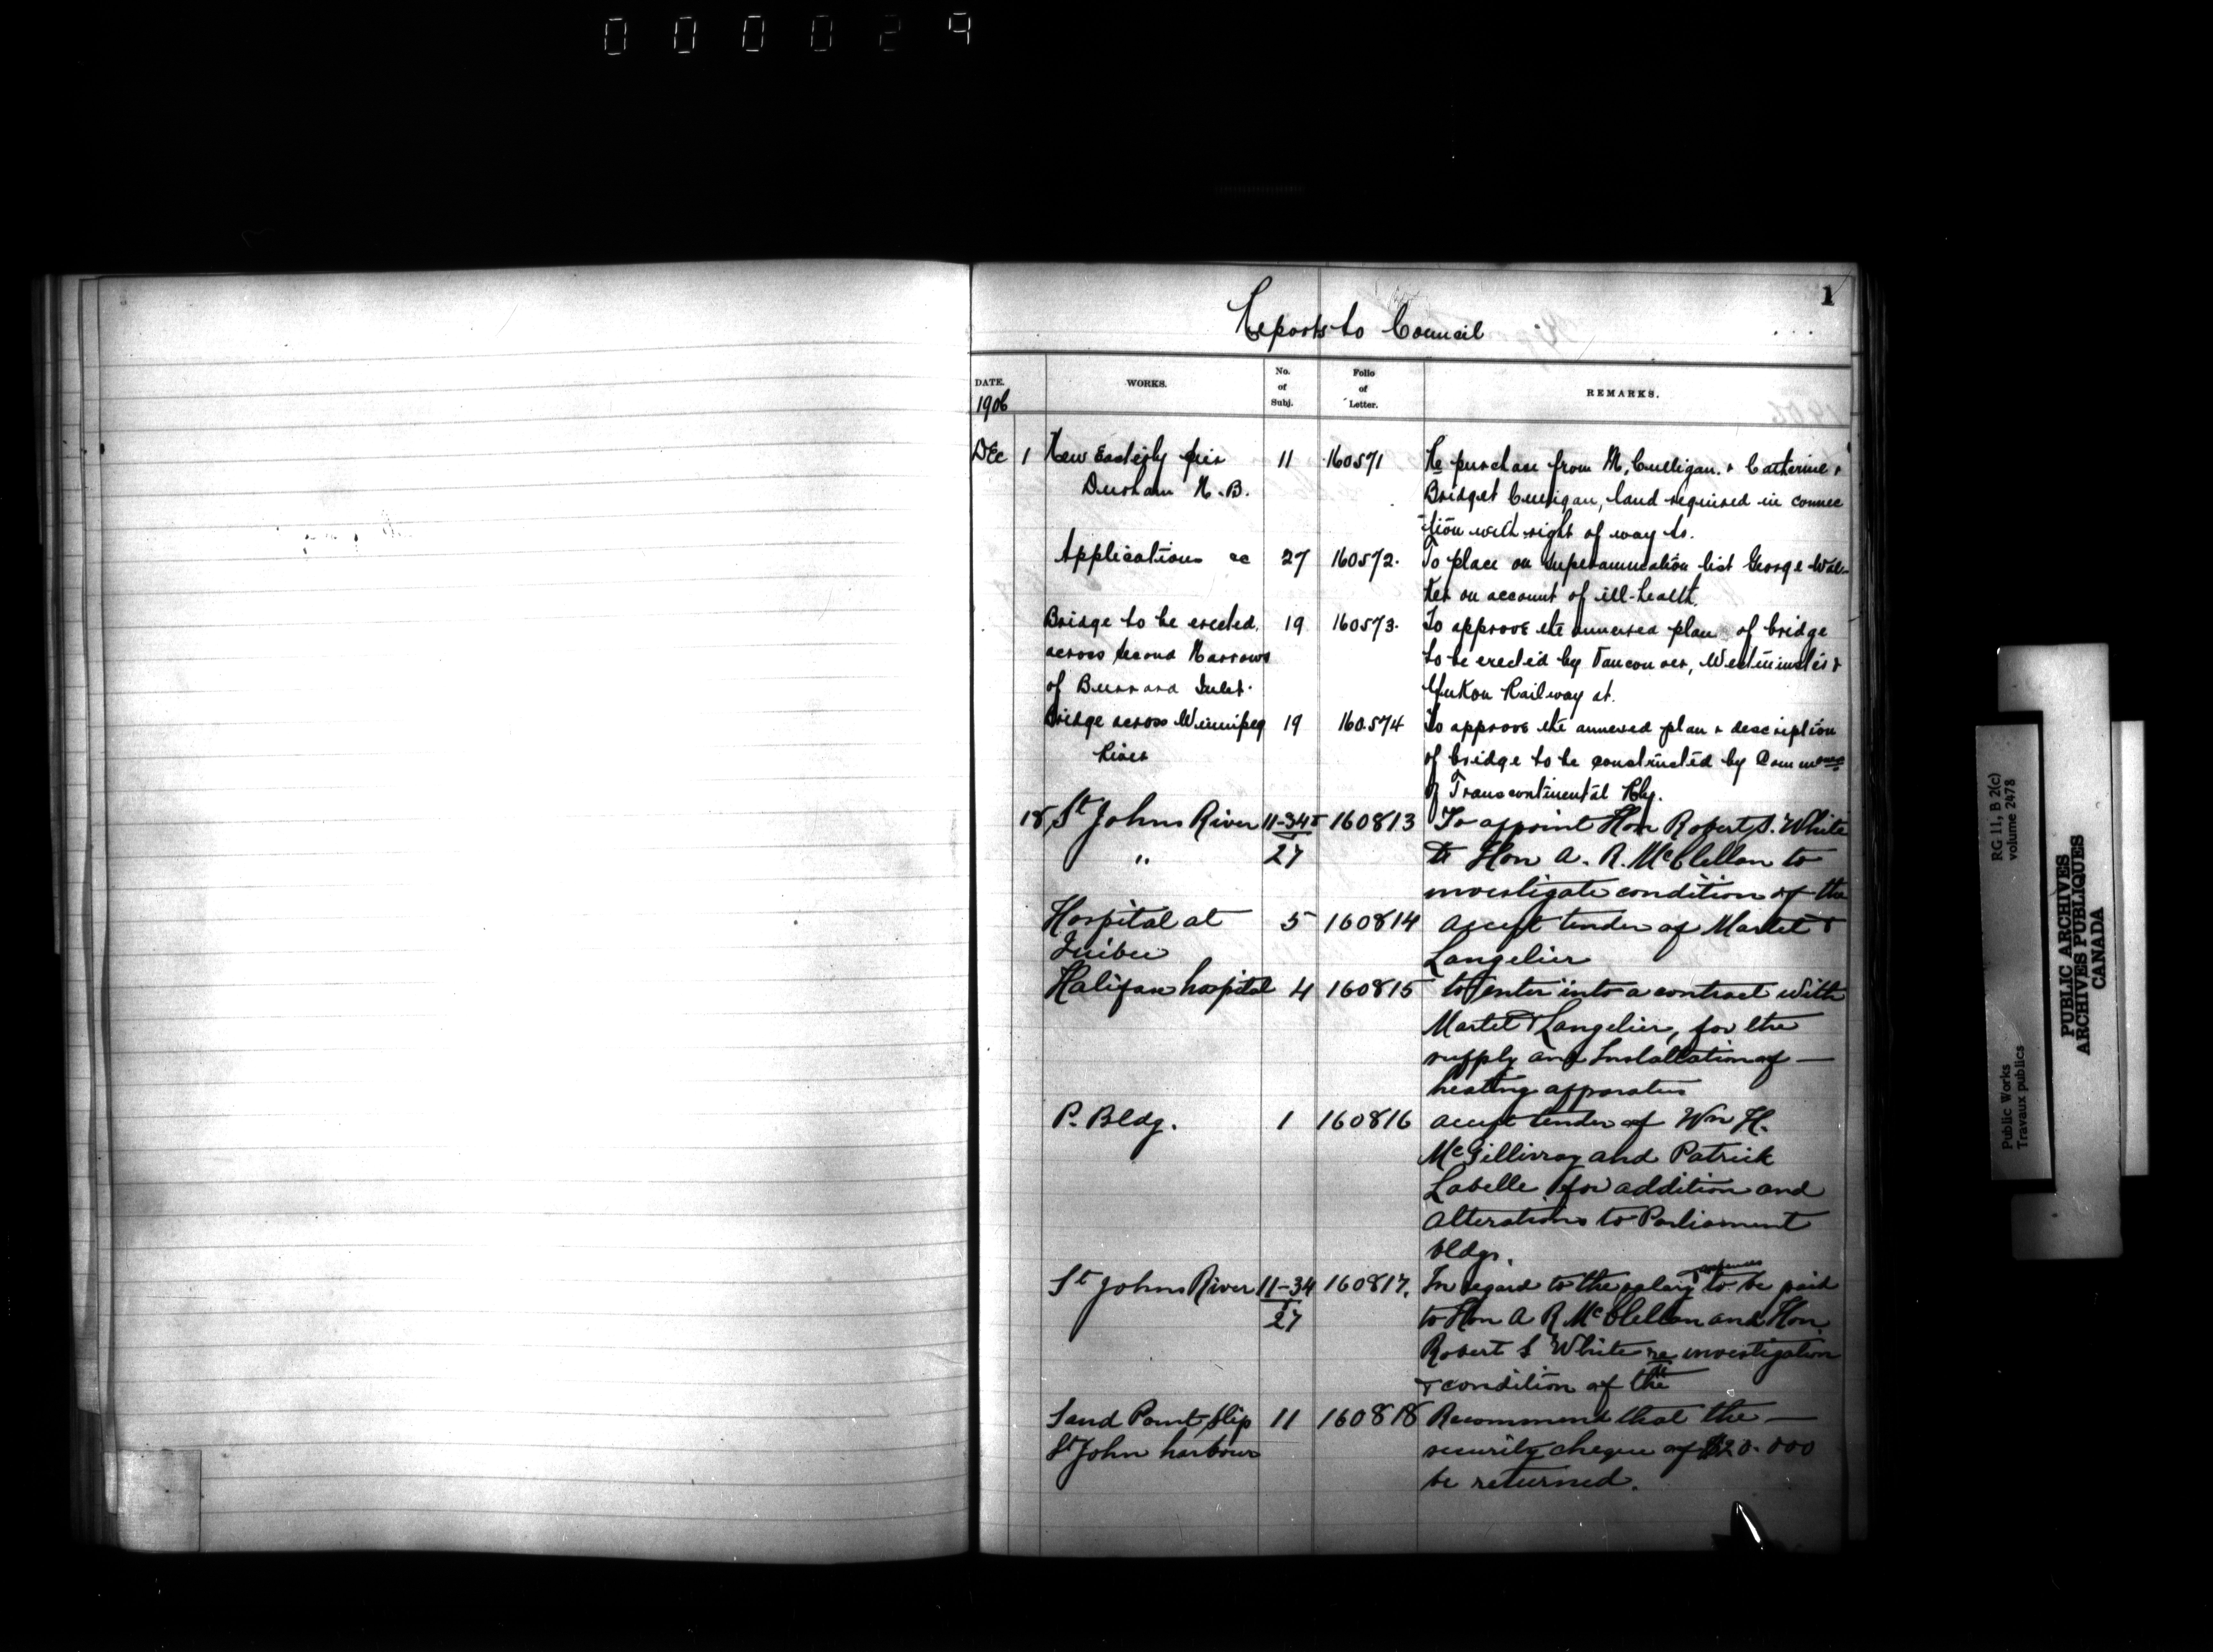 000029
1
Reports to Council
DATE. WORKS. No. of Subj. Folio of Letter. REMARKS.
1906
Dec 1 New Easterly pier 11 160571 Re purchase from M. Culligan. & Catherine &
Durham N.B. Bridget Culligan, land required in connec
-tion with right of way to.
Applications &c 27 160572. To place on superannuation list George Wal-
ter on account of ill-health.
Bridge to be erected 19 160573. To approve the annexed plan of bridge
across Second Narrows to be erected by Vancouver, Westminster &
of Burrard Inlet. Yukon Railway at.
Bridge across Winnipeg 19 160574 To approve the annexed plan & description
River of bridge to be constructed by Comm
of Transcontinental Rly.
18 St Johns River 11-34 & 160813 To appoint Hon Robert S. White
" 27 & Hon A. R. McClellan to
investigate condition of the
Hospital at 5 160814 accept tender of Martel &
Quibec Langelier
Halifax hospital 4 160815 to enter into a contract with
Martel & Langelier, for the
supply and Installation of —
heating apparatus
P. Bldg. 1 160816 accept tender of Wm H.
McGillivray and Patrick
Labelle for addition and
alterations to Parliament
bldgs.
St Johns River 11-34 160817. In regard to the salary & expenses to be paid
27 to Hon A R McClellan and Hon
Robert S White re investigation
& condition of the
Sand Point Slip 11 160818 Recommend that the —
St John harbour security cheque of $20.000
be returned.
RG 11, B 2(c)
volume 2478
Public Works
Travaux publics
PUBLIC ARCHIVES
ARCHIVES PUBLIQUES
CANADA